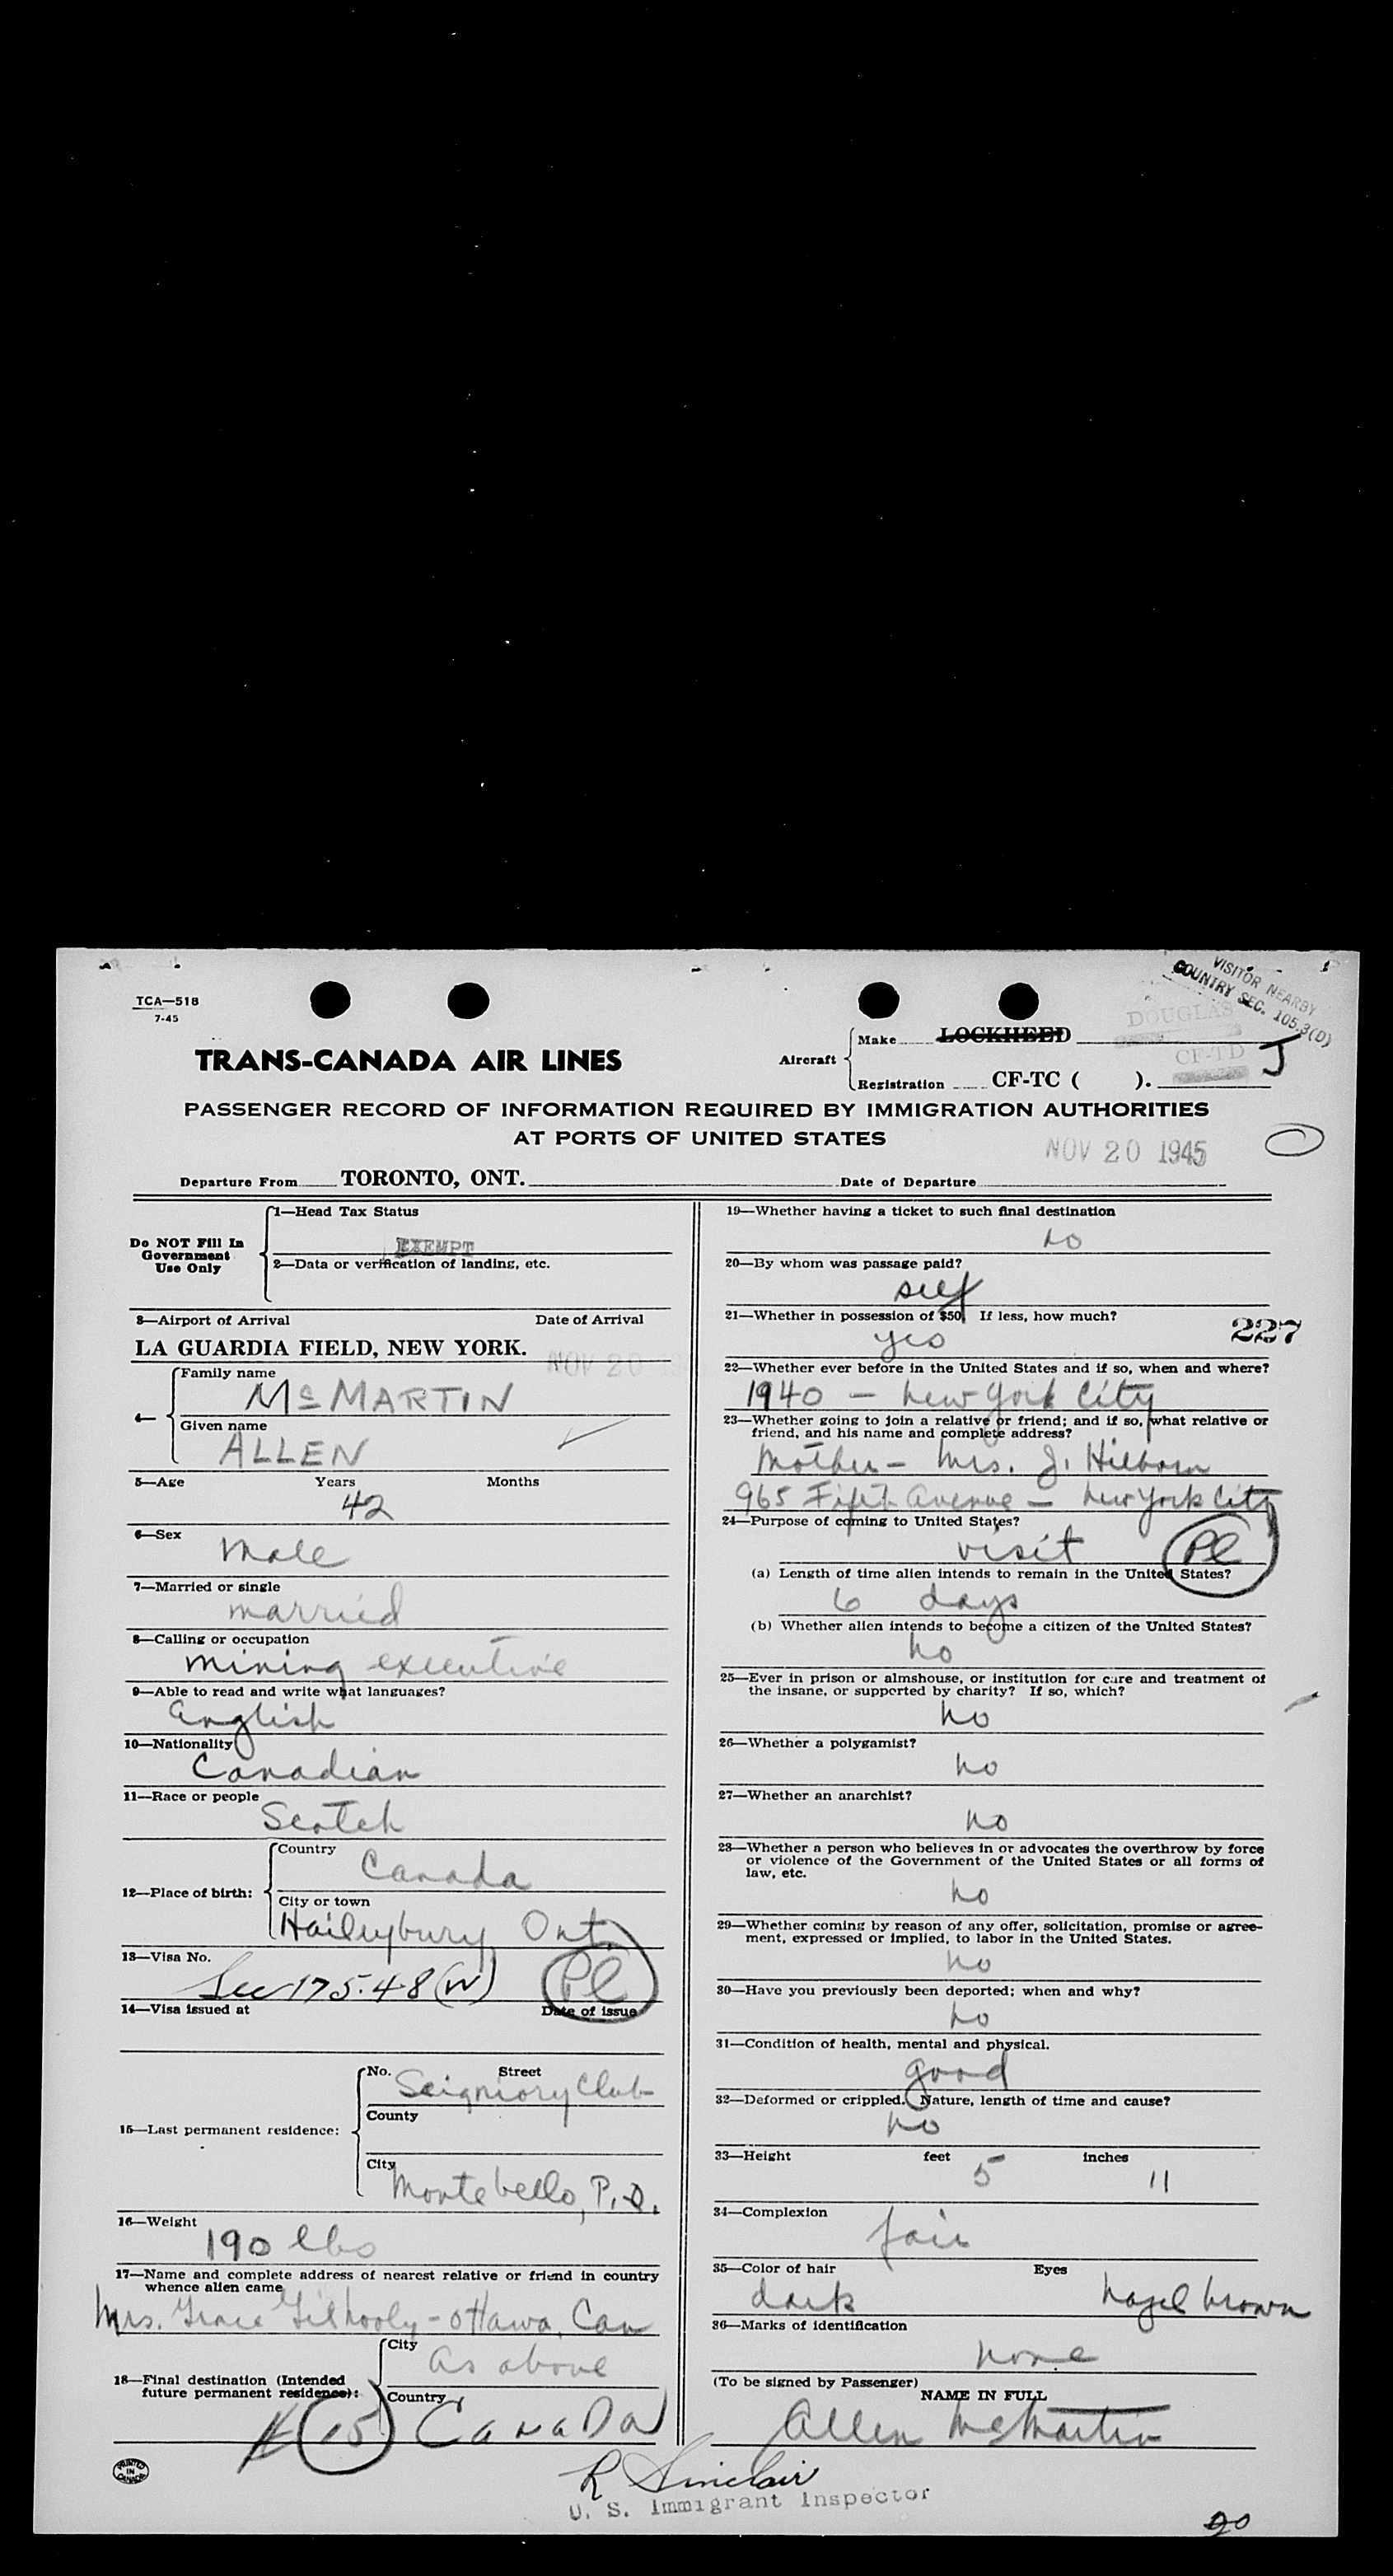 VISITOR NEARBY
COUNTRY SEC. 105.3(D)
TCA—518
7-45
DOUGLAS
TRANS-CANADA AIR LINES
Aircraft
Make LOCKHEED
CF-TD J
Registration CF-TC ( ).
PASSENGER RECORD OF INFORMATION REQUIRED BY IMMIGRATION AUTHORITIES
AT PORTS OF UNITED STATES
NOV 20 1945
Departure From TORONTO, ONT. Date of Departure
Do NOT Fill In
Government
Use Only
1—Head Tax Status
EXEMPT
2—Data or verification of landing, etc.
3—Airport of Arrival Date of Arrival
LA GUARDIA FIELD, NEW YORK.
NOV 20
4—
Family name
McMARTIN
Given name
ALLEN
5—Age Years Months
42
6—Sex
male
7—Married or single
married
8—Calling or occupation
mining executive
9—Able to read and write what languages?
English
10—Nationality
Canadian
11—Race or people
Scotch
12—Place of birth:
Country
Canada
City or town
Haileybury Ont.
13—Visa No.
Sec 175.48(W) Pl
14—Visa issued at Date of issue
15—Last permanent residence:
No. Street
Seigniory Club
County
City
Montebello, P.Q.
16—Weight
190 lbs
17—Name and complete address of nearest relative or friend in country
whence alien came
Mrs. Grace Gilhooly - Ottawa, Can
18—Final destination (Intended
future permanent residence):
City
as above
Country
(15) CANADA
PRINTED
IN
CANADA
19—Whether having a ticket to such final destination
no
20—By whom was passage paid?
self
21—Whether in possession of $50. If less, how much?
yes
227
22—Whether ever before in the United States and if so, when and where?
1940 — New York City
23—Whether going to join a relative or friend; and if so, what relative or
friend, and his name and complete address?
Mother - Mrs. J. Hilborn
965 Fifth Avenue — New York City
24—Purpose of coming to United States?
visit Pl
(a) Length of time alien intends to remain in the United States?
6 days
(b) Whether alien intends to become a citizen of the United States?
no
25—Ever in prison or almshouse, or institution for care and treatment of
the insane, or supported by charity? If so, which?
no
26—Whether a polygamist?
no
27—Whether an anarchist?
no
28—Whether a person who believes in or advocates the overthrow by force
or violence of the Government of the United States or all forms of
law, etc.
no
29—Whether coming by reason of any offer, solicitation, promise or agree-
ment, expressed or implied, to labor in the United States.
no
30—Have you previously been deported; when and why?
no
31—Condition of health, mental and physical.
good
32—Deformed or crippled. Nature, length of time and cause?
no
33—Height feet inches
5 11
34—Complexion
fair
35—Color of hair Eyes
dark hazel brown
36—Marks of identification
none
(To be signed by Passenger)
NAME IN FULL
Allen McMartin
R Sinclair
U. S. Immigrant Inspector
20